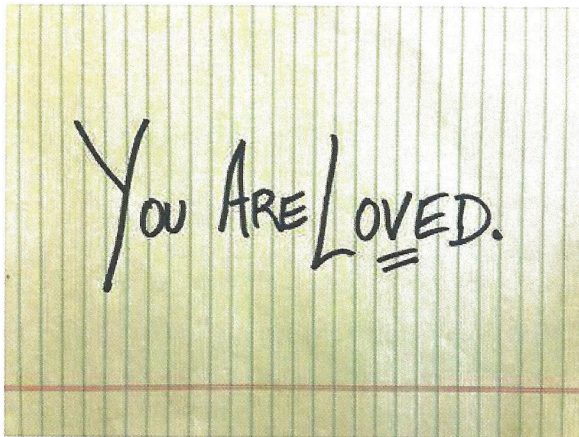 YOU ARE LOVED.